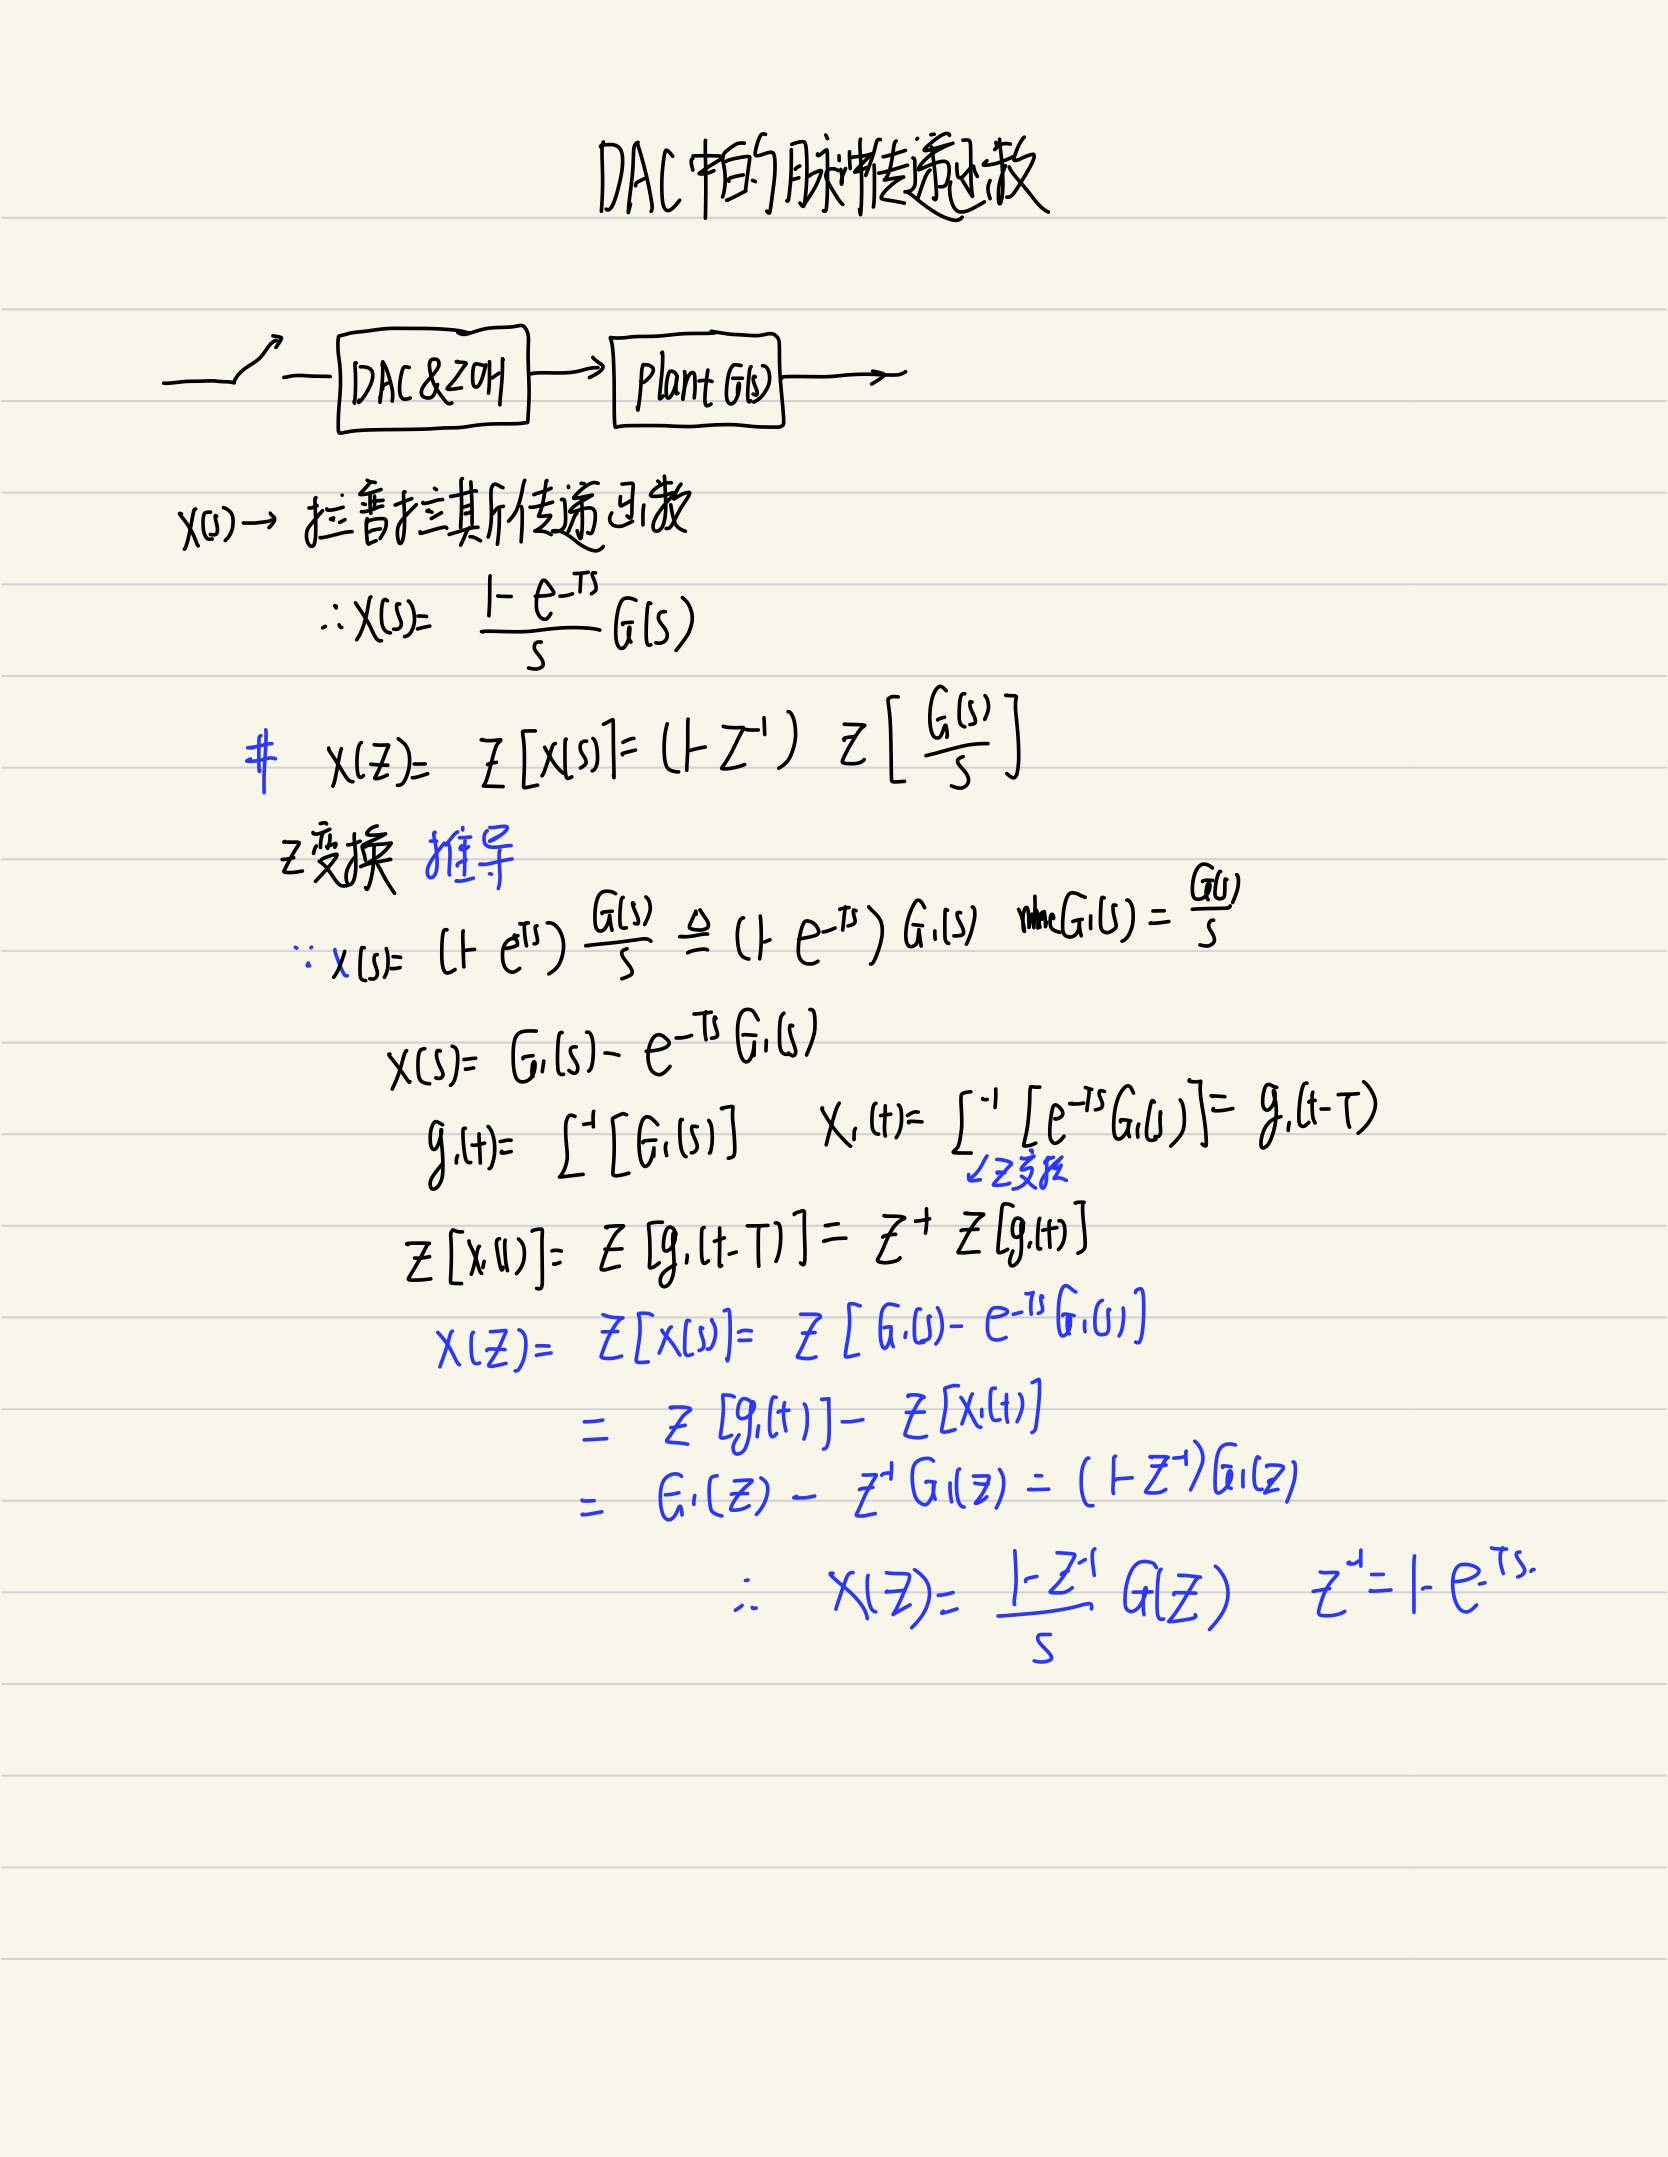 DAC中的脉冲传递函数
DAC&ZOH Plant G(s)
X(s)→ 拉普拉斯传递函数
∴X(s)= \frac{1-e^{-Ts}}{s} G(s)
# X(Z)= Z[X(s)]=(1-Z^{-1}) Z[\frac{G(s)}{s}]
Z变换 推导
∵X(s)= (1-e^{-Ts}) \frac{G(s)}{s} ≜ (1-e^{-Ts})G_1(s) G_1(s)= \frac{G(s)}{s}
X(s)= G_1(s)-e^{-Ts}G_1(s)
g_1(t)= L^{-1}[G_1(s)] X_1(t)= L^{-1}[e^{-Ts}G_1(s)]= g_1(t-T)
↙Z变换
Z[X_1(t)]= Z[g_1(t-T)]= Z^{-1} Z[g_1(t)]
X(Z)= Z[X(s)]= Z[G_1(s)-e^{-Ts}G_1(s)]
= Z[g_1(t)]- Z[X_1(t)]
= G_1(Z)- Z^{-1}G_1(Z)=(1-Z^{-1})G_1(Z)
∴ X(Z)= \frac{1-Z^{-1}}{s} G(Z) Z^{-1}=1-e^{-Ts}.